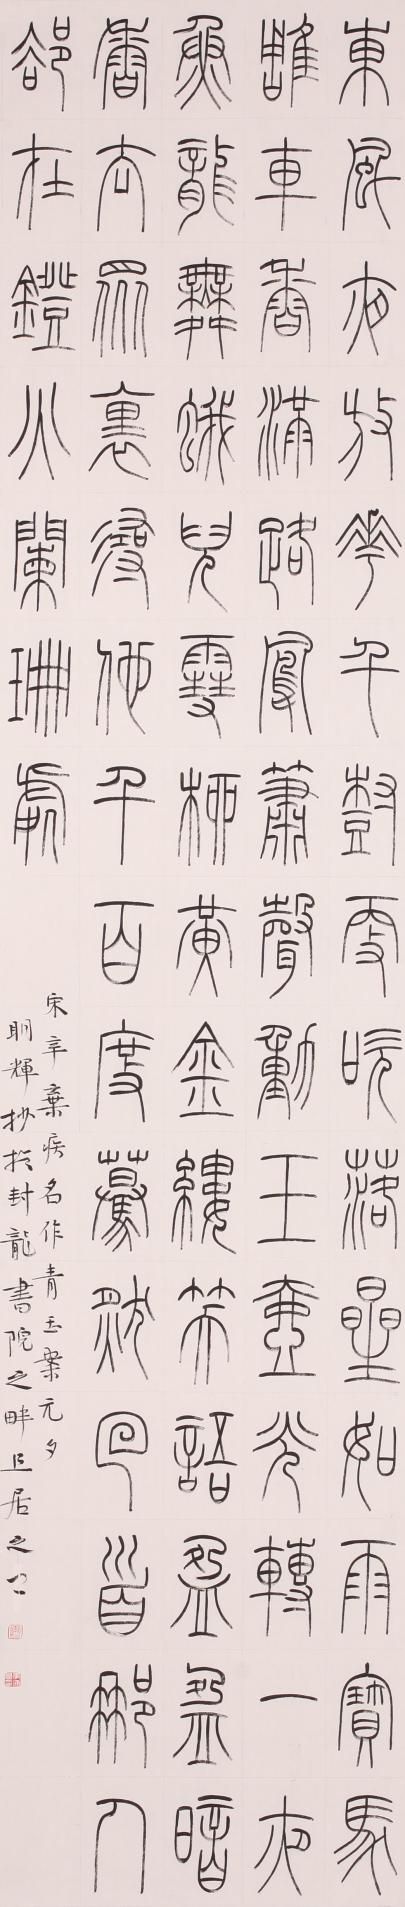 東風夜放華千樹更吹落星如雨寶馬
雕車香滿路鳳簫聲動玉壺光轉一夜
魚龍舞蛾兒雪柳黃金縷笑語盈盈暗
香去眾裏尋他千百度驀然回首那人
卻在鐙火闌珊處
宋辛棄疾名作青玉案元夕
明輝抄於封龍書院之畔止居之